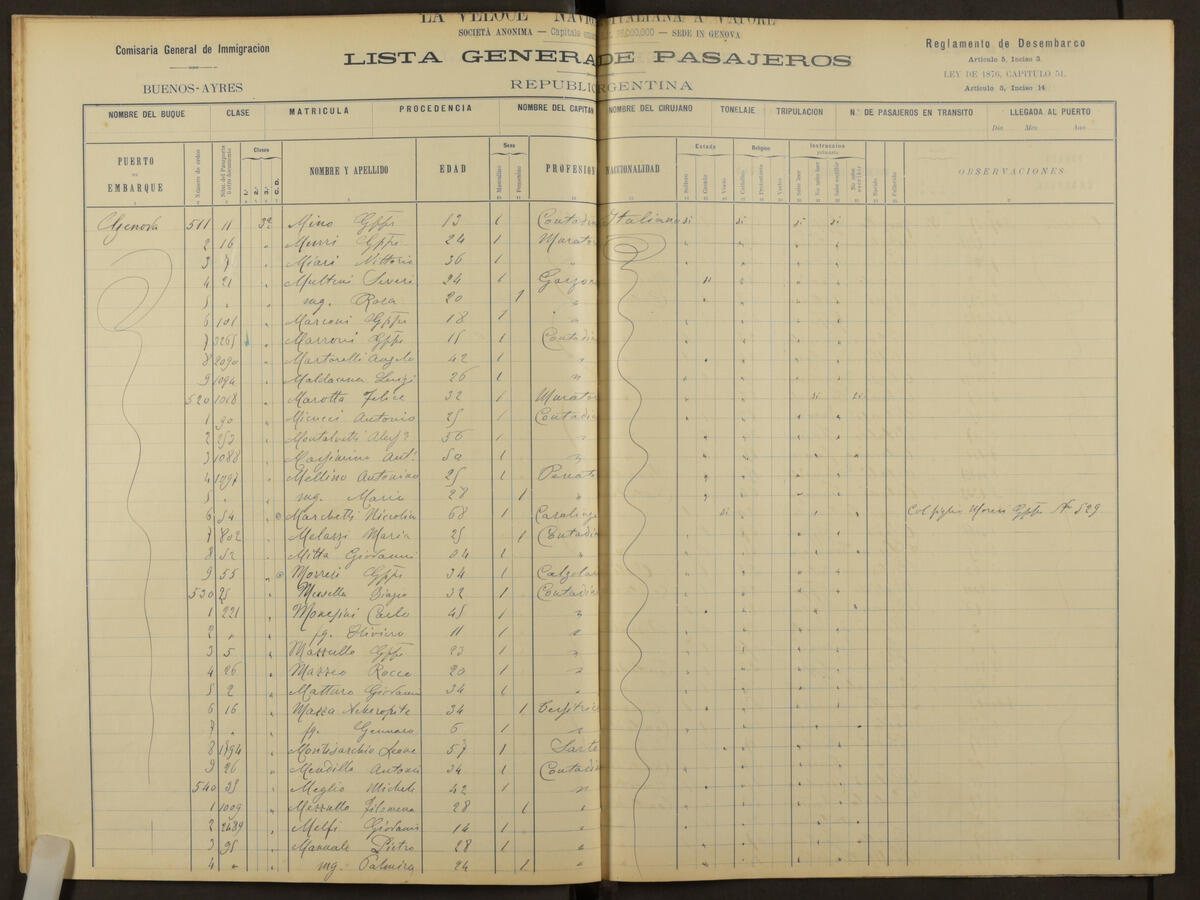 LA VELOCE NAVI ITALIANA A VAPORE
SOCIETÀ ANONIMA — Capitale 000,000 — SEDE IN GENOVA
Comisaria General de Immigracion
BUENOS-AYRES
LISTA GENERA DE PASAJEROS
REPUBLIC RGENTINA
Reglamento de Desembarco
Articulo 5, Inciso 3.
LEY DE 1876, CAPITULO 51.
Articulo 5, Inciso 14
NOMBRE DEL BUQUE CLASE MATRICULA PROCEDENCIA NOMBRE DEL CAPITAN NOMBRE DEL CIRUJANO TONELAJE TRIPULACION N.° DE PASAJEROS EN TRANSITO LLEGADA AL PUERTO
Dia Mes Ano
PUERTO DE EMBARQUE Número de orden Clases 1.ª 2.ª 3.ª C. D. NOMBRE Y APELLIDO EDAD Sexo Masculino Femenino PROFESION NACCIONALIDAD Estado Soltero Casado Viudo Religion Catholico Protestante Varios Instruccion primaria Sabe leer No sabe leer Sabe escribir No sabe escribir Nacido Fallecido OBSERVACIONES
Genova 511 11 3ª Mino Gppe 13 1 Contadin Italiano si si si si
2 16 " Murri Gppe 24 1 Murator
3 7 " Miari Vittorio 36 1 "
4 21 " Multini Severi 24 1 Garzon
5 " " mg. Rosa 20 1 "
6 101 " Marconi Gppe 18 1 "
7 3265 " Marroni Gppe 15 1 Contadin
8 2090 " Martorelli Angelo 42 1 "
9 1094 " Luigi 26 1 "
520 1068 " Marotta Felice 32 1 Murator si si
1 90 " Micucci Antonio 25 1 Contadin
2 253 " 56 1 "
3 1088 " Massimino Ant. 50 1 "
4 1097 " Mellino Antonino 25 1
5 " " mg. Maria 28 1 "
6 54 " Marchetti Nicolin 68 1 Casaling si Col figlio Moresi Gppe N. 529
7 802 " Melazzi Maria 25 1 Contadin
8 52 " Mitta Giovanni 1 "
9 55 " Morresi Gppe 34 1 Calzolai
530 25 " Messella Biagio 32 1 Contadin
1 221 " Carlo 45 1 "
2 " " fg. Oliviero 11 1 "
3 5 " Mazzullo Gppe 23 1 "
4 26 " Mazzeo Rocco 20 1 "
5 2 " Matturo Giovanni 34 1 "
6 16 " Mazza 34 1
7 " " fg. Gennaro 6 1 "
8 1794 " Montesarchio Leone 57 1 Sarte
9 26 " Mendillo Antoni 34 1 Contadin
540 35 " Meglio Michele 42 1 "
1 1009 " Mezzullo Filomena 28 1 "
2 2489 " Melfi Giovanni 14 1 "
3 95 " Manuale Pietro 28 1 "
4 " " mg. Palmira 24 1 "